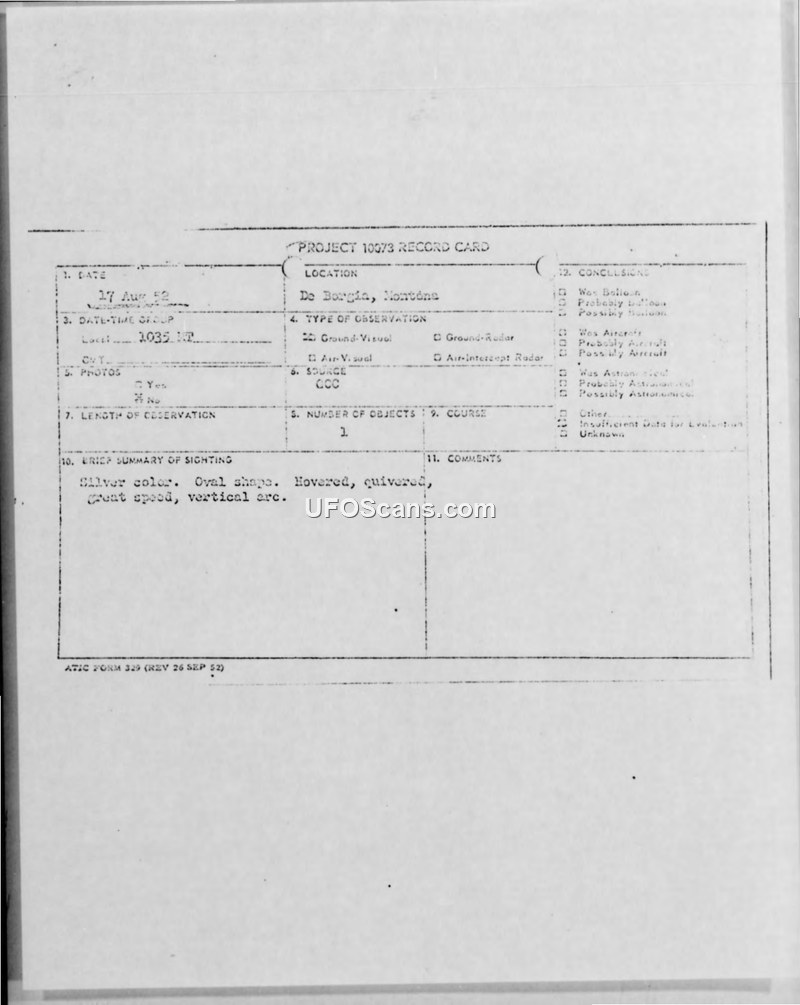 PROJECT 10073 RECORD CARD
1. DATE
17 Aug 52
2. LOCATION
De Borgia, Montana
12. CONCLUSIONS
Was Balloon
Probably Balloon
Possibly Balloon
3. DATE-TIME GROUP
Local 1035
GMT
4. TYPE OF OBSERVATION
Ground-Visual
Ground-Radar
Air-Visual
Air-Intercept Radar
Was Aircraft
Probably Aircraft
Possibly Aircraft
5. PHOTOS
Yes
No
6. SOURCE
GOC
Was Astronomical
Probably Astronomical
Possibly Astronomical
7. LENGTH OF OBSERVATION
8. NUMBER OF OBJECTS
1
9. COURSE
Other
Insufficient Data for Evaluation
Unknown
10. BRIEF SUMMARY OF SIGHTING
Silver color. Oval shape. Hovered, quivered,
great speed, vertical arc.
11. COMMENTS
UFOScans.com
ATIC FORM 329 (REV 26 SEP 52)